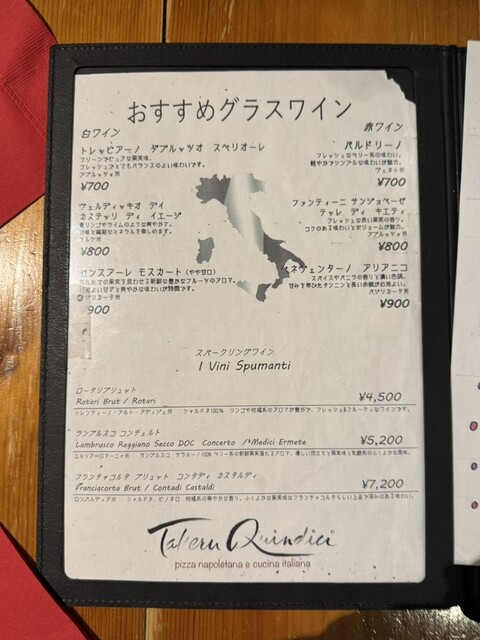 おすすめグラスワイン
白ワイン
トレッビアーノ ダブルッツオ スペリオーレ
クリーンでピュアな果実味。
フレッシュでとてもバランスのよい味わいです。
アブルッツォ州
¥700
ヴェルディッキオ デイ
カステッリ ディ イエージ
青リンゴやライムのような爽やかす。
アルケ州
¥800
センスアーレ モスカート (やや甘口)
¥900
赤ワイン
バルドリーノ
フレッシュなベリー系の味わい。
軽やかでシンプルな味わいが魅力。
ヴェネト州
¥700
ファンティーニ サンジョベーゼ
テッレ ディ キエティ
フレッシュな赤い果実の香り。
コクのある味わいとボリュームが魅力。
アブルッツォ州
¥800
ベネヴェンターノ アリアニコ
スパイスやバニラの香りと濃い色調。
甘みを帯びたタンニンと長い余韻が心地よい。
バジリカータ州
¥900
スパークリングワイン
I Vini Spumanti
ロータリブリュット
Rotari Brut / Rotari ¥4,500
トレンティーノ・アルト・アディジェ州 シャルドネ100% リンゴや柑橘系のアロマが豊かで、フレッシュ&フルーティなワインです。
ランブルスコ コンチェルト
Lambrusco Reggiano Secco DOC Concerto / Medici Ermete ¥5,200
フランチャコルタ ブリュット コンタディ カスタルディ
Franciacorta Brut / Contadi Castaldi ¥7,200
Takeru Quindici
pizza napoletana e cucina italiana